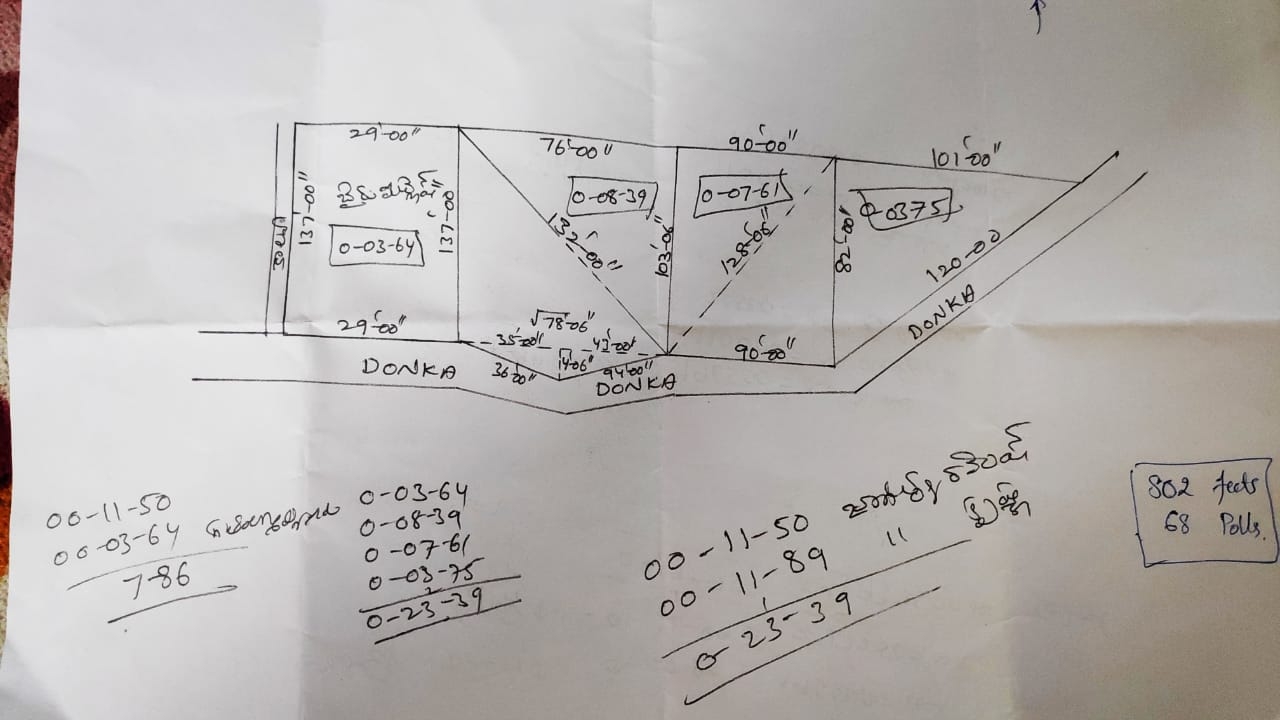 29'-00"
76'-00"
90'-00"
101'-00"
137'-00"
137'-00"
0-03-64
0-08-39
132'-00"
103'-06"
0-07-61
128'-06"
82'-00"
0-0375
120-00
29'-00"
√78'-06"
35'-00"
14-06"
36'-00"
94'-00"
90'-00"
DONKA
DONKA
DONKA
00-11-50
00-03-64
7-86
0-03-64
0-08-39
0-07-61
0-03-75
0-23-39
00-11-50
00-11-89 "
0-23-39
802 feets
68 Polls.